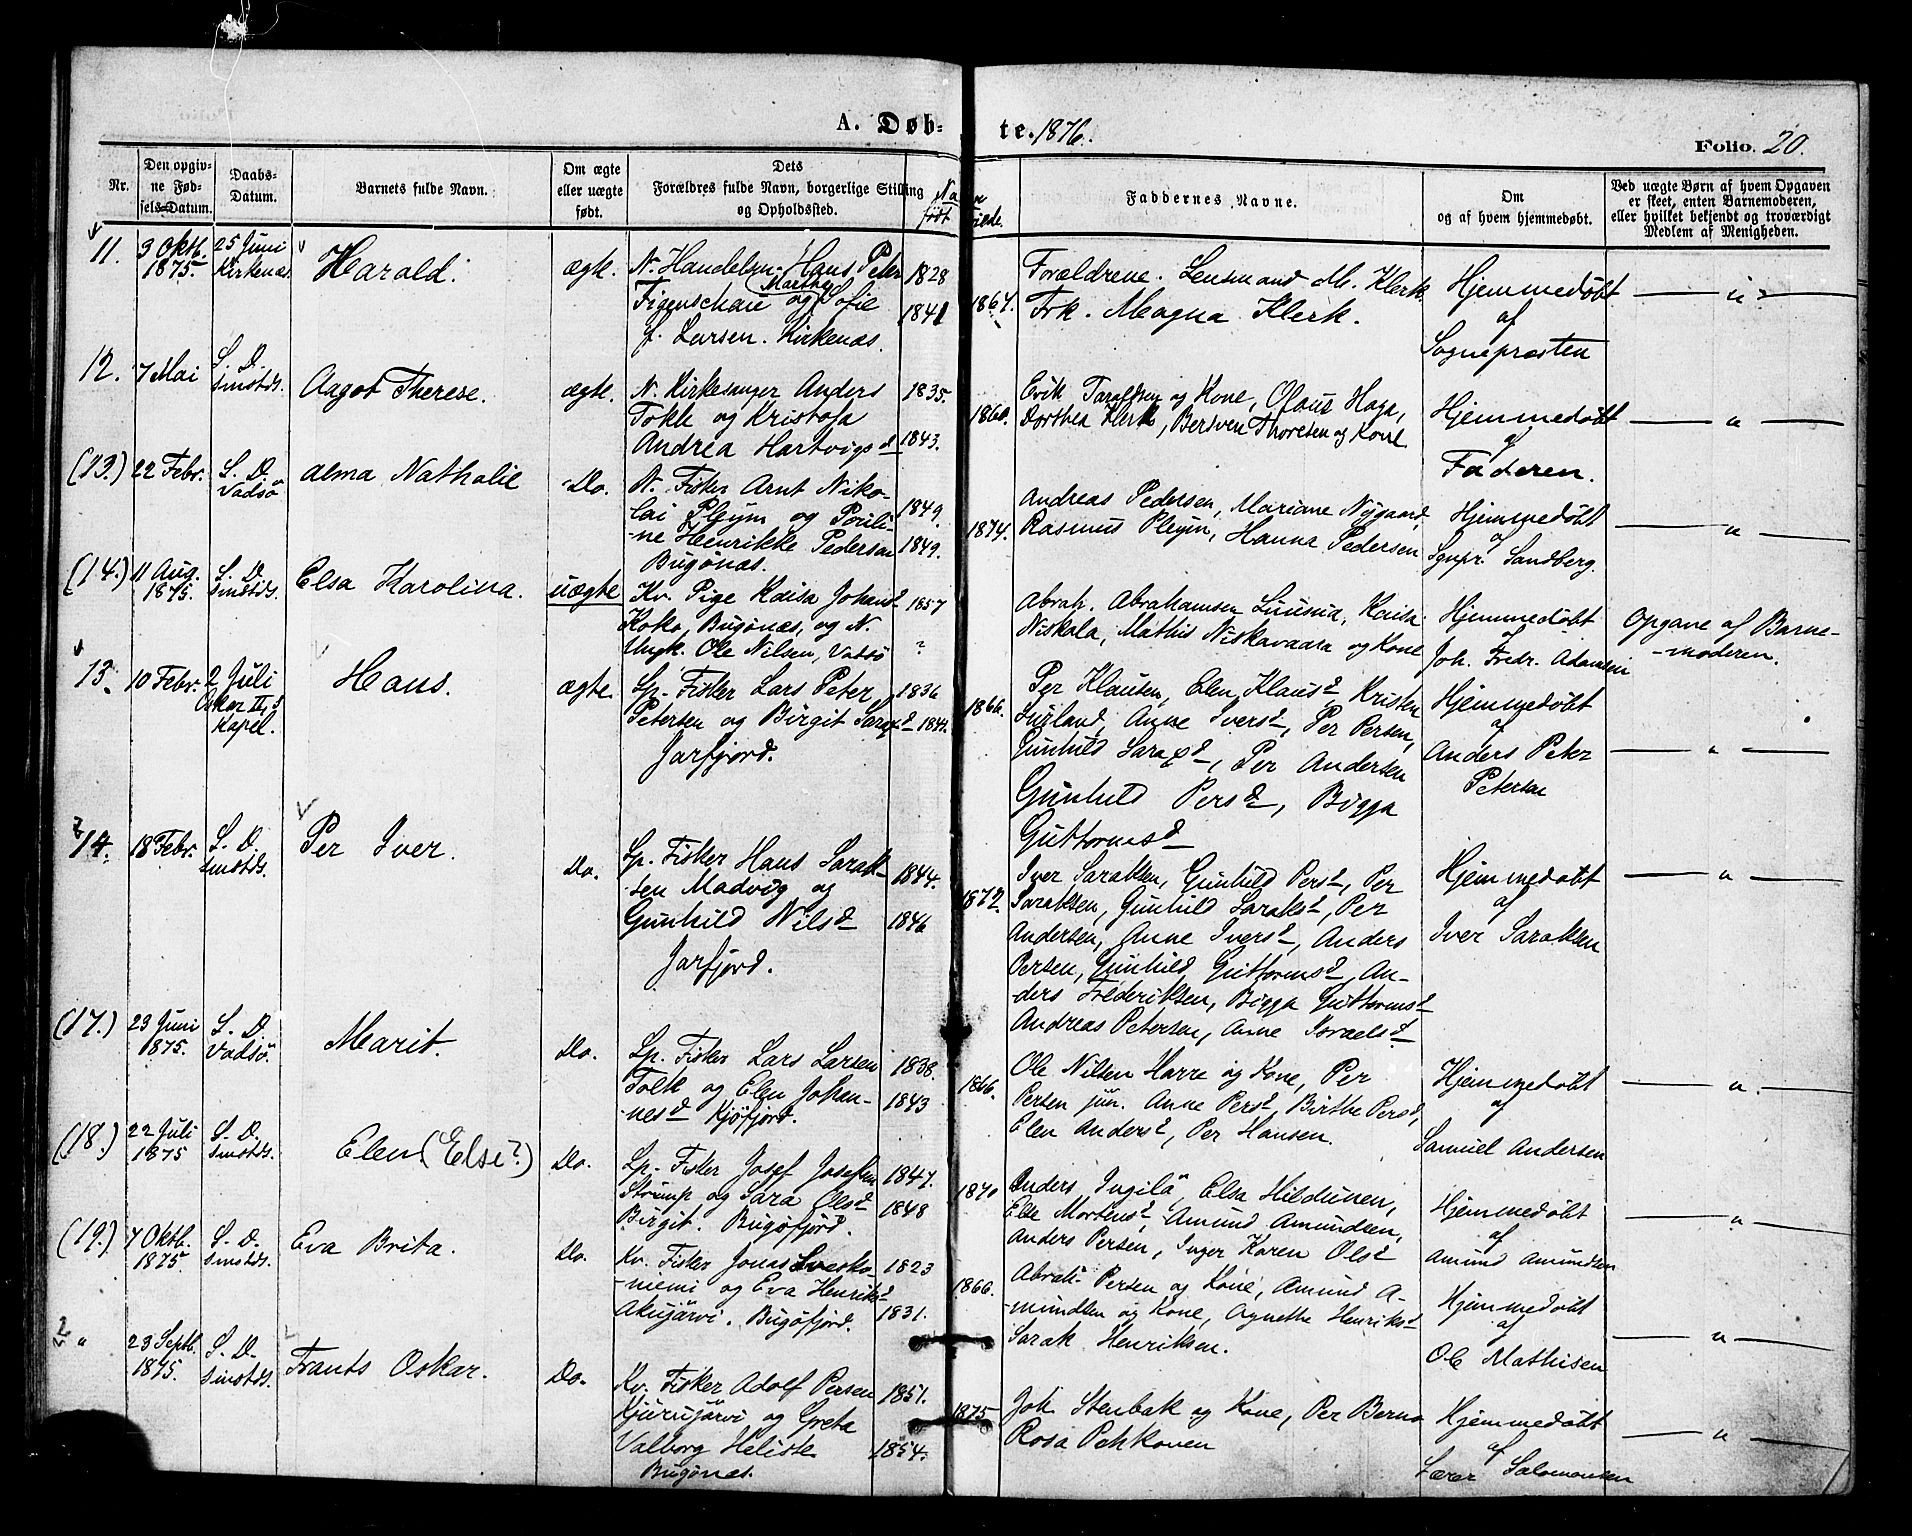 A. Døb-te. 1876.
Folio. 20.
Nr.
Den opgiv-
ne Fød-
sels-Datum.
Daabs-
Datum.
Barnets fulde Navn.
Om ægte
eller uægte
født.
Dets
Forældres fulde Navn, borgerlige Stilling
og Opholdssted.
født
Faddernes Navne.
Om
og af hvem hjemmedøbt.
Ved uægte Børn af hvem Opgaven
er skeet, enten Barnemoderen,
eller hvilket bekjendt og troværdigt
Medlem af Menigheden.
11.
3 Oktb.
1875.
25 Juni
Kirkenæs.
Harald.
ægte.
N. Handelsm. Hans Peter
Figenschau og (Marthe) Sofie
f. Larsen. Kirkenæs.
1828
1841
1864.
Forældrene. Lensmand M. Klerk
Frk. Magna Klerk.
Hjemmedøbt
af
Sognepræsten
— " —
12.
7 Mai
S. D.
sinstds.
Aagot Therese.
ægte.
N. Kirkesanger Anders
Tokle og Kristofa
Andrea Hartvigsd
1835.
1843.
1860.
Erik Taraldsen og Kone, Olaus Haga,
Dorthea Klerk, Bersven Thoresen og Kone
Hjemmedøbt
af
Faderen.
— " —
(13.)
22 Febr.
S. D.
Vadsö
Alma Nathalie
Do.
N. Fisker Arnt Niko-
lai Pleym og Pouli-
-ne Henrikke Pedersen
Bugönæs.
1849.
1849.
1874.
Andreas Pedersen, Mariane Nygaard,
Rasmus Pleym, Hanna Pedersen
Hjemmedøbt
af
Sgnpr. Sandberg.
— " —
(14.)
11 Aug.
1875.
S. D.
sinstds.
Elsa Karolina.
uægte
Kv. Pige Kaisa Johansd
Koko, Bugönæs, og N.
Ungk. Ole Nilsen, Vadsö
1857
?
Abrah. Abrahamsen Luusua, Kaisa
Niskala, Mathis Niskavaara og Kone
Hjemmedøbt
af
Joh. Fredr. Adamsen
Opgave af Barne-
-moderen.
13.
10 Febr.
2 Juli
Oskar II,s
Kapel.
Hans.
ægte.
Lp. Fisker Lars Peter
Petersen og Birgit Saraxd
Jarfjord.
1836
1841.
1866.
Per Klausen, Elen Klausd, Kristen
Anne Iversd, Per Persen,
Gunhild Saraxd, Per Andersen
Gunhild Persd, Bigga
Guttormsd
Hjemmedøbt
af
Anders Peter
Petersen
— " —
14.
18 Febr.
S. D.
sinstds.
Per Iver.
Do.
Lp. Fisker Hans Sarak-
-sen Madvig og
Gunhild Nilsd
Jarfjord.
1844.
1846
1872.
Iver Saraksen, Gunhild Persd, Per
Saraksen, Gunhild Saraksd, Per
Andersen, Anne Iversd, Anders
Persen, Gunhild Guttormsd, An-
-ders Frederiksen, Bigga Guttormsd
Andreas Petersen, Anne Israelsd
Hjemmedøbt
af
Iver Saraksen
— " —
(17.)
23 Juni
1875.
S. D.
Vadsö.
Marit.
Do.
Lp. Fisker Lars Larsen
Tolk og Elen Johan-
-nesd Kjöfjord.
1838.
1843
1866.
Ole Nilsen Harre og Kone, Per
Persen jun. Anne Persd, Birthe Persd,
Elen Andersd, Per Hansen.
Hjemmedøbt
af
Samuel Andersen
— " —
(18.)
22 Juli
1875
S. D.
sinstds.
Elen. (Else?)
Do.
Lp. Fisker Josef Josefsen
Strump og Sara Olsd
Birgit. Bugöfjord.
1847.
1848
1870
Anders Ingilä, Elsa Hildunen,
Else Mortensd, Amund Amundsen,
Anders Persen, Inger Karen Olsd
Hjemmedøbt
af
Amund Amundsen
— " —
(19.)
7 Oktb.
1875.
S. D.
sinstds.
Eva Brita.
Do.
Kv. Fisker Jonas
-niemi og Eva Henriksd
Akujärvi. Bugöfjord.
1823
1831.
1866.
Abrah. Persen og Kone, Amund A-
-mundsen og Kone, Agnethe Henriksd
Sarak Henriksen.
Hjemmedøbt
af
Ole Mathisen
— " —
"
23 Septb.
1875.
S. D.
sinstds.
Frants Oskar.
Do.
Kv. Fisker Adolf Persen
Kjurujärvi og Greta
Valborg Heliste
Bugönæs.
1851.
1854.
1875
Joh. Stenbak og Kone, Per Berna
Rosa Pehkonen
Hjemmedøbt
af
Lærer Salomonsen
— " —